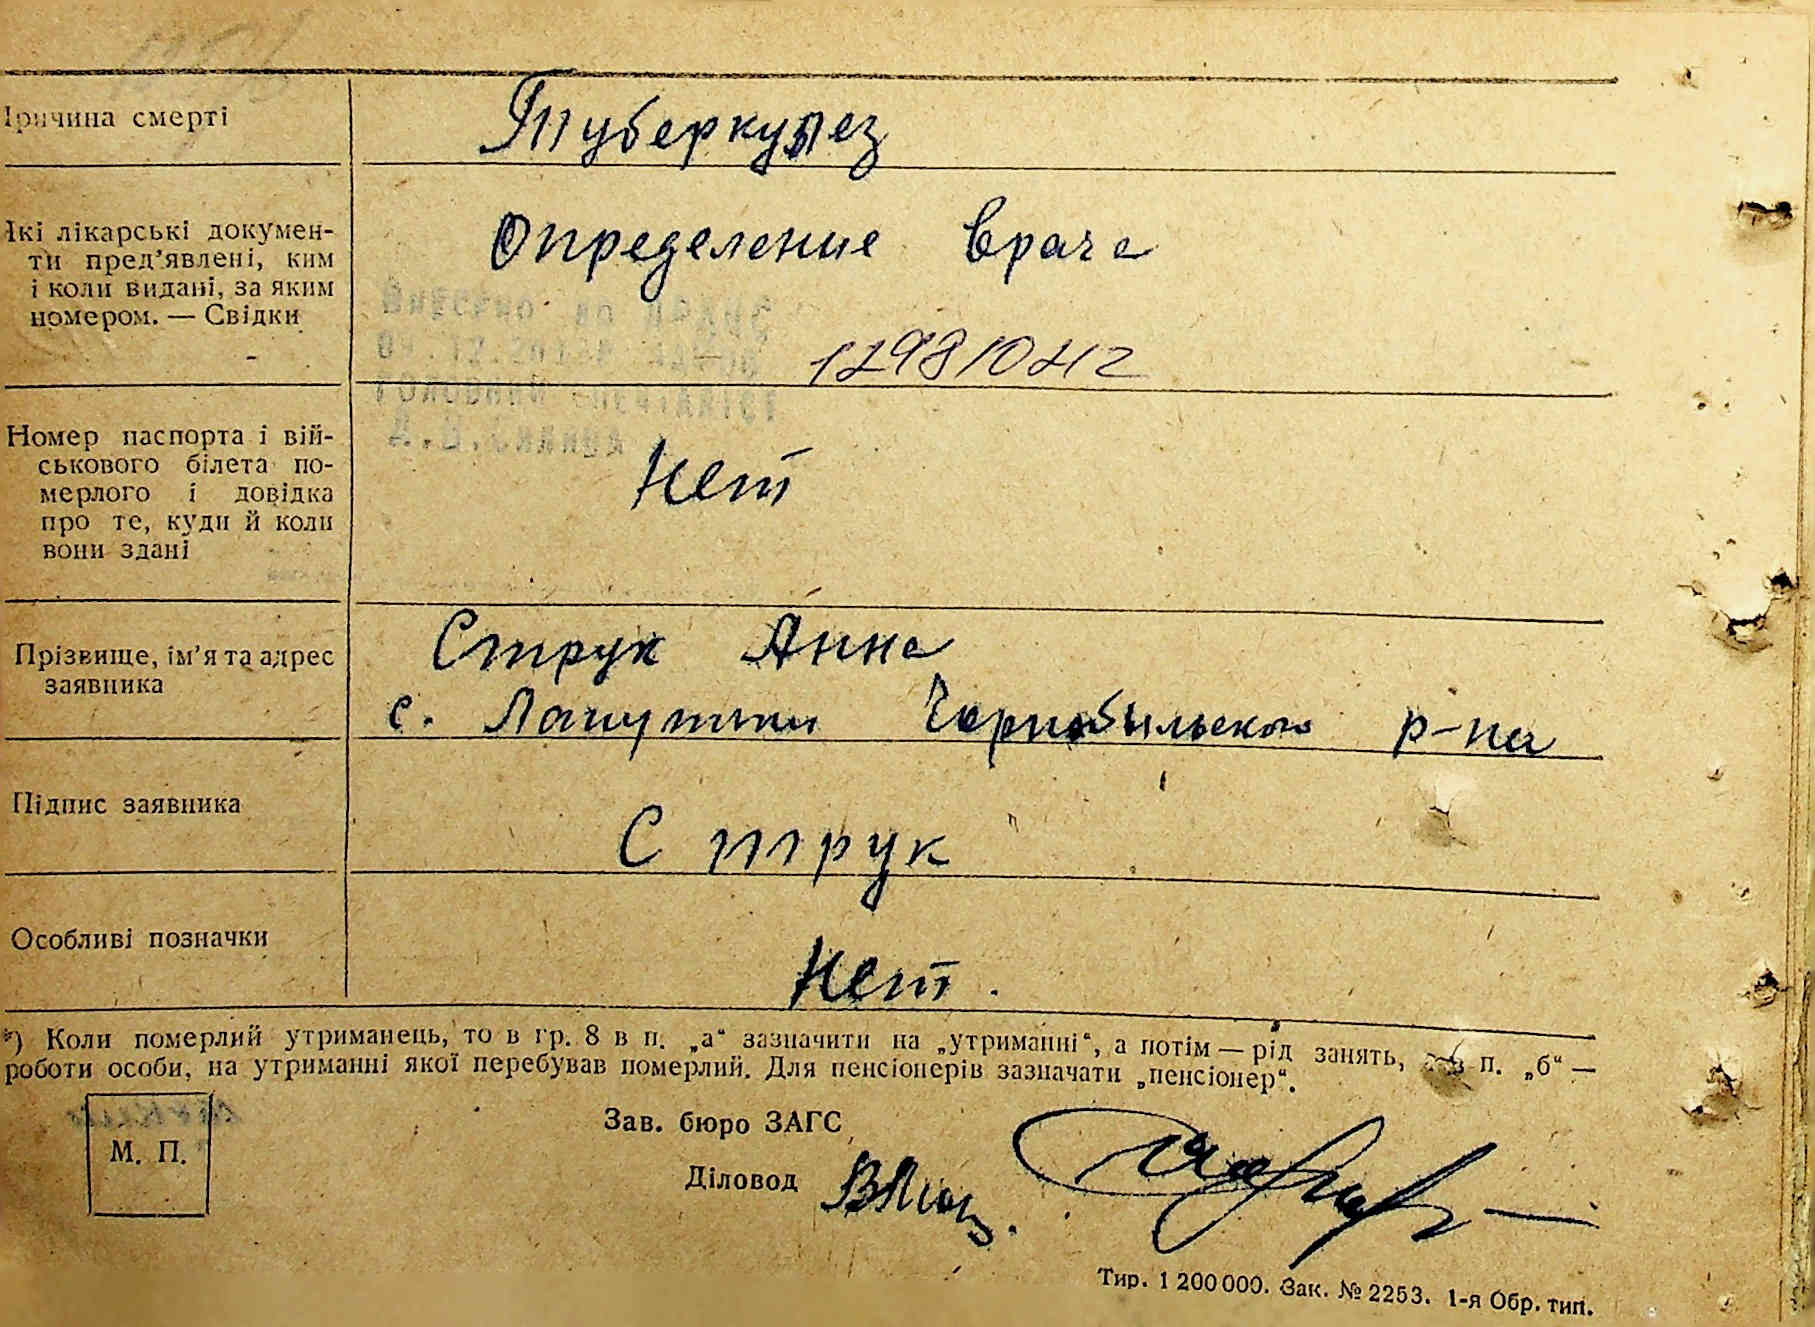 Причина смерті
Туберкулез
Які лікарські докумен-
ти пред’явлені, ким
і коли видані, за яким
номером. — Свідки
Определение врача
Внесено до ДРАЦС
Головний спеціаліст
Номер паспорта і вій-
ськового білета по-
мерлого і довідка
про те, куди й коли
вони здані
Нет
Прізвище, ім’я та адрес
заявника
Струк Анна
с. Лапутьки Чорнобильского р-на
Підпис заявника
Струк
Особливі позначки
Нет.
*) Коли померлий утриманець, то в гр. 8 в п. „а“ зазначити на „утриманні“, а потім — рід занять, а в п. „б“ —
роботи особи, на утриманні якої перебував померлий. Для пенсіонерів зазначати „пенсіонер“.
М. П.
Зав. бюро ЗАГС
Діловод
Тир. 1 200 000. Зак. № 2253. 1-я Обр. тип.